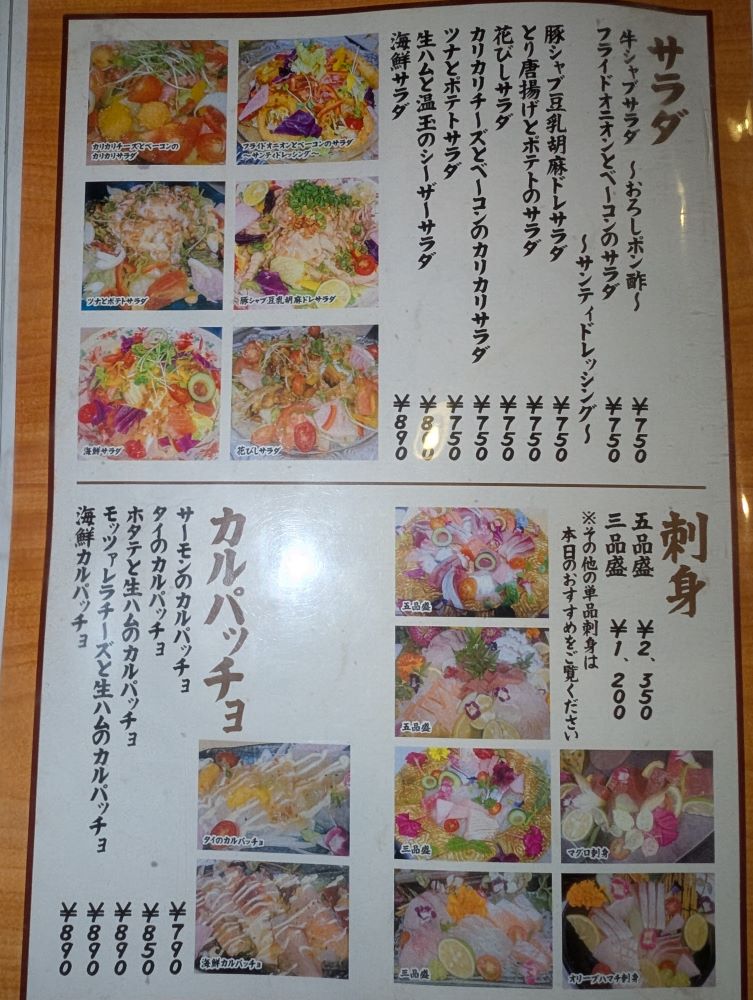 サラダ
牛シャブサラダ 〜おろしポン酢〜 ¥750
フライドオニオンとベーコンのサラダ ¥750
〜サンティドレッシング〜
豚シャブ豆乳胡麻ドレサラダ ¥750
とり唐揚げとポテトのサラダ ¥750
花びしサラダ ¥750
カリカリチーズとベーコンのカリカリサラダ ¥750
ツナとポテトサラダ ¥750
生ハムと温玉のシーザーサラダ ¥890
海鮮サラダ ¥890
フライドオニオンとベーコンのサラダ
〜サンティドレッシング〜
カリカリチーズとベーコンの
カリカリサラダ
豚シャブ豆乳胡麻ドレサラダ
ツナとポテトサラダ
花びしサラダ
海鮮サラダ
刺身
五品盛 ¥2,350
三品盛 ¥1,200
※その他の単品刺身は
本日のおすすめをご覧ください
五品盛
五品盛
三品盛
マグロ刺身
三品盛
オリーブハマチ刺身
カルパッチョ
サーモンのカルパッチョ ¥790
タイのカルパッチョ ¥850
ホタテと生ハムのカルパッチョ ¥890
モッツァレラチーズと生ハムのカルパッチョ ¥890
海鮮カルパッチョ ¥890
タイのカルパッチョ
海鮮カルパッチョ